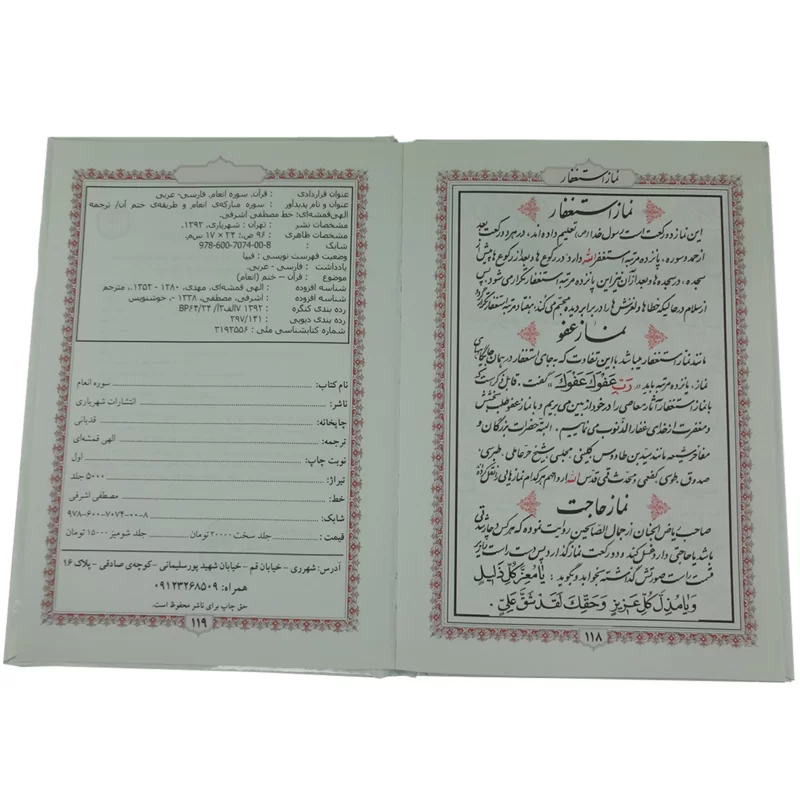 نماز استغفار
نماز استغفار
این نماز دو رکعت است رسول خدا (ص) تعلیم داده اند، در هر دو رکعت بعد
از حمد و سوره، پانزده مرتبه استغفر الله دارد؛ در رکوع ها و بعد از رکوع ها و پیش از
سجده، در سجده ها و بعد از آن نیز این پانزده مرتبه استغفار تکرار می شود. پس
از سلام در حالیکه خطاها و لغزش ها را در برابر دیده مجسم می کند، هفتاد مرتبه استغفار تکرار گردد
نماز عفو
مانند نماز استغفار میباشد با این تفاوت که به جای استغفار در همان جایگاههای
نماز، پانزده مرتبه باید «رَبِّ عَفْوَكَ عَفْوَكَ» گفت. قابل ذکر است که
با نماز استغفار آثار معاصی را در خود از بین می بریم و با نماز عفو طلب بخشش
و مغفرت از خدای غفار الذنوب می نماییم. البته حضرات بزرگان و
مفاخر شیعه مانند سید بن طاووس، کلینی، مجلسی، شیخ حر عاملی، طبرسی،
صدوق، طوسی، کفعمی و محدث قمی قدس الله اسرارهم هر کدام نمازهایی را نقل کرده
نماز حاجت
صاحب ریاض الجنان از جمال الصالحین روایت نموده که هر کس در چاه صدقی
باشد یا حاجتی دارد وضو کند و دو رکعت نماز گذارد پس دست راست را بر
قسمت راست صورتش گذاشته بخوابد و بگوید: یا مُعِزَّ کُلِّ ذَلیلٍ
وَیا مُذِلَّ کُلِّ عَزیزٍ وَحَقِّكَ لَقَدْ شَقَّ عَلَیَّ.
۱۱۸
عنوان قراردادی : قرآن. سوره انعام. فارسی- عربی
عنوان و نام پدیدآور : سوره مبارکه‌ی انعام و طریقه‌ی ختم آن/ ترجمه
الهی قمشه‌ای؛ خط مصطفی اشرفی.
مشخصات نشر : تهران : شهریاری، ۱۳۹۲.
مشخصات ظاهری : ۹۶ ص.؛ ۲۴ × ۱۷ س.م.
شابک : 978-600-7074-00-8
وضعیت فهرست نویسی : فیپا
یادداشت : فارسی - عربی.
موضوع : قرآن -- ختم (انعام)
شناسه افزوده : الهی قمشه‌ای، مهدی، ۱۲۸۰ - ۱۳۵۲.، مترجم
شناسه افزوده : اشرفی، مصطفی، ۱۳۳۸ -، خوشنویس
رده بندی کنگره : ۱۳۹۲ ۷الف۳آ/ BP۶۴/۲۴
رده بندی دیویی : ۲۹۷/۱۴۱
شماره کتابشناسی ملی : ۳۱۹۲۵۵۶
نام کتاب: سوره انعام
ناشر: انتشارات شهریاری
چاپخانه: قدیانی
ترجمه: الهی قمشه‌ای
نوبت چاپ: اول
تیراژ: ۵۰۰۰ جلد
خط: مصطفی اشرفی
شابک: ۹۷۸-۶۰۰-۷۰۷۴-۰۰-۸
قیمت: جلد سخت ۲۰۰۰۰ تومان جلد شومیز ۱۵۰۰۰ تومان
آدرس: شهرری - خیابان قم - خیابان شهید پورسلیمانی - کوچه‌ی صادقی - پلاک ۱۶
همراه: ۰۹۱۲۳۲۶۸۵۰۹
حق چاپ برای ناشر محفوظ است.
۱۱۹